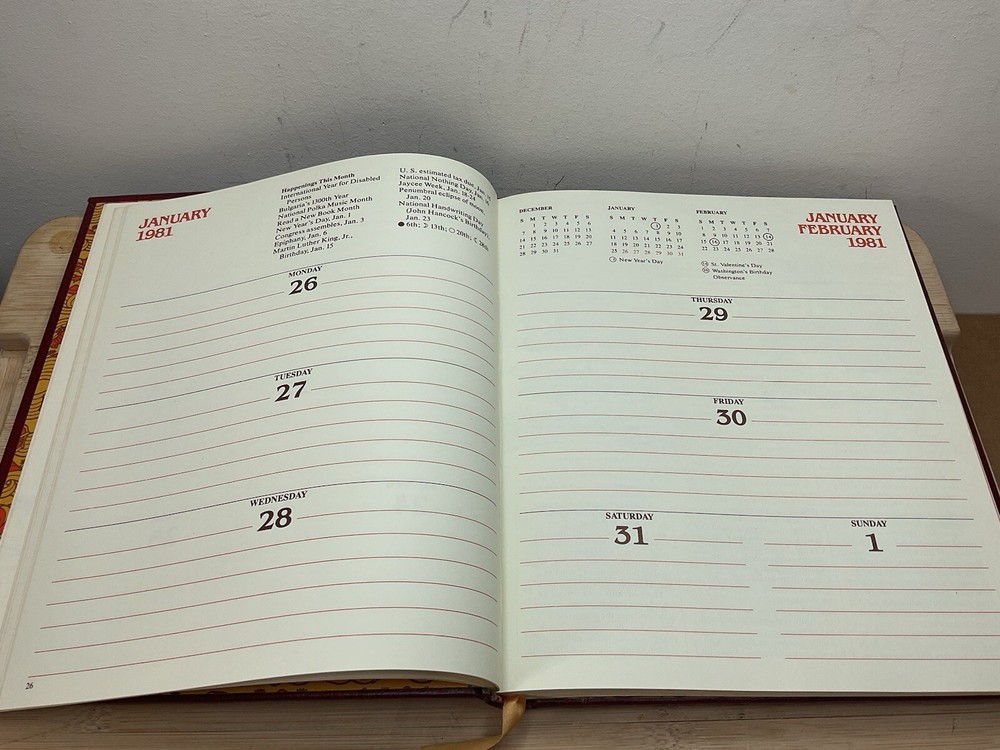 JANUARY
1981
Happenings This Month
International Year for Disabled
Persons
Bulgaria's 1300th Year
National Polka Music Month
Read a New Book Month
New Year's Day, Jan. 1
Congress assembles, Jan. 3
Epiphany, Jan. 6
Martin Luther King, Jr.,
Birthday, Jan. 15
U. S. estimated tax due, Jan.
National Nothing Day, Jan.
Jaycee Week, Jan. 18-24
Penumbral eclipse of
Jan. 20
National Handwriting Day
(John Hancock's Birthday)
Jan. 23
6th; 13th; 20th; 28th
MONDAY
26
TUESDAY
27
WEDNESDAY
28
26
DECEMBER
S M T W T F S
1 2 3 4 5 6
7 8 9 10 11 12 13
14 15 16 17 18 19 20
21 22 23 24 25 26 27
28 29 30 31
JANUARY
S M T W T F S
1 2 3
4 5 6 7 8 9 10
11 12 13 14 15 16 17
18 19 20 21 22 23 24
25 26 27 28 29 30 31
1 New Year's Day
FEBRUARY
S M T W T F S
1 2 3 4 5 6 7
8 9 10 11 12 13 14
15 16 17 18 19 20 21
22 23 24 25 26 27 28
14 St. Valentine's Day
16 Washington's Birthday
Observance
JANUARY
FEBRUARY
1981
THURSDAY
29
FRIDAY
30
SATURDAY
31
SUNDAY
1